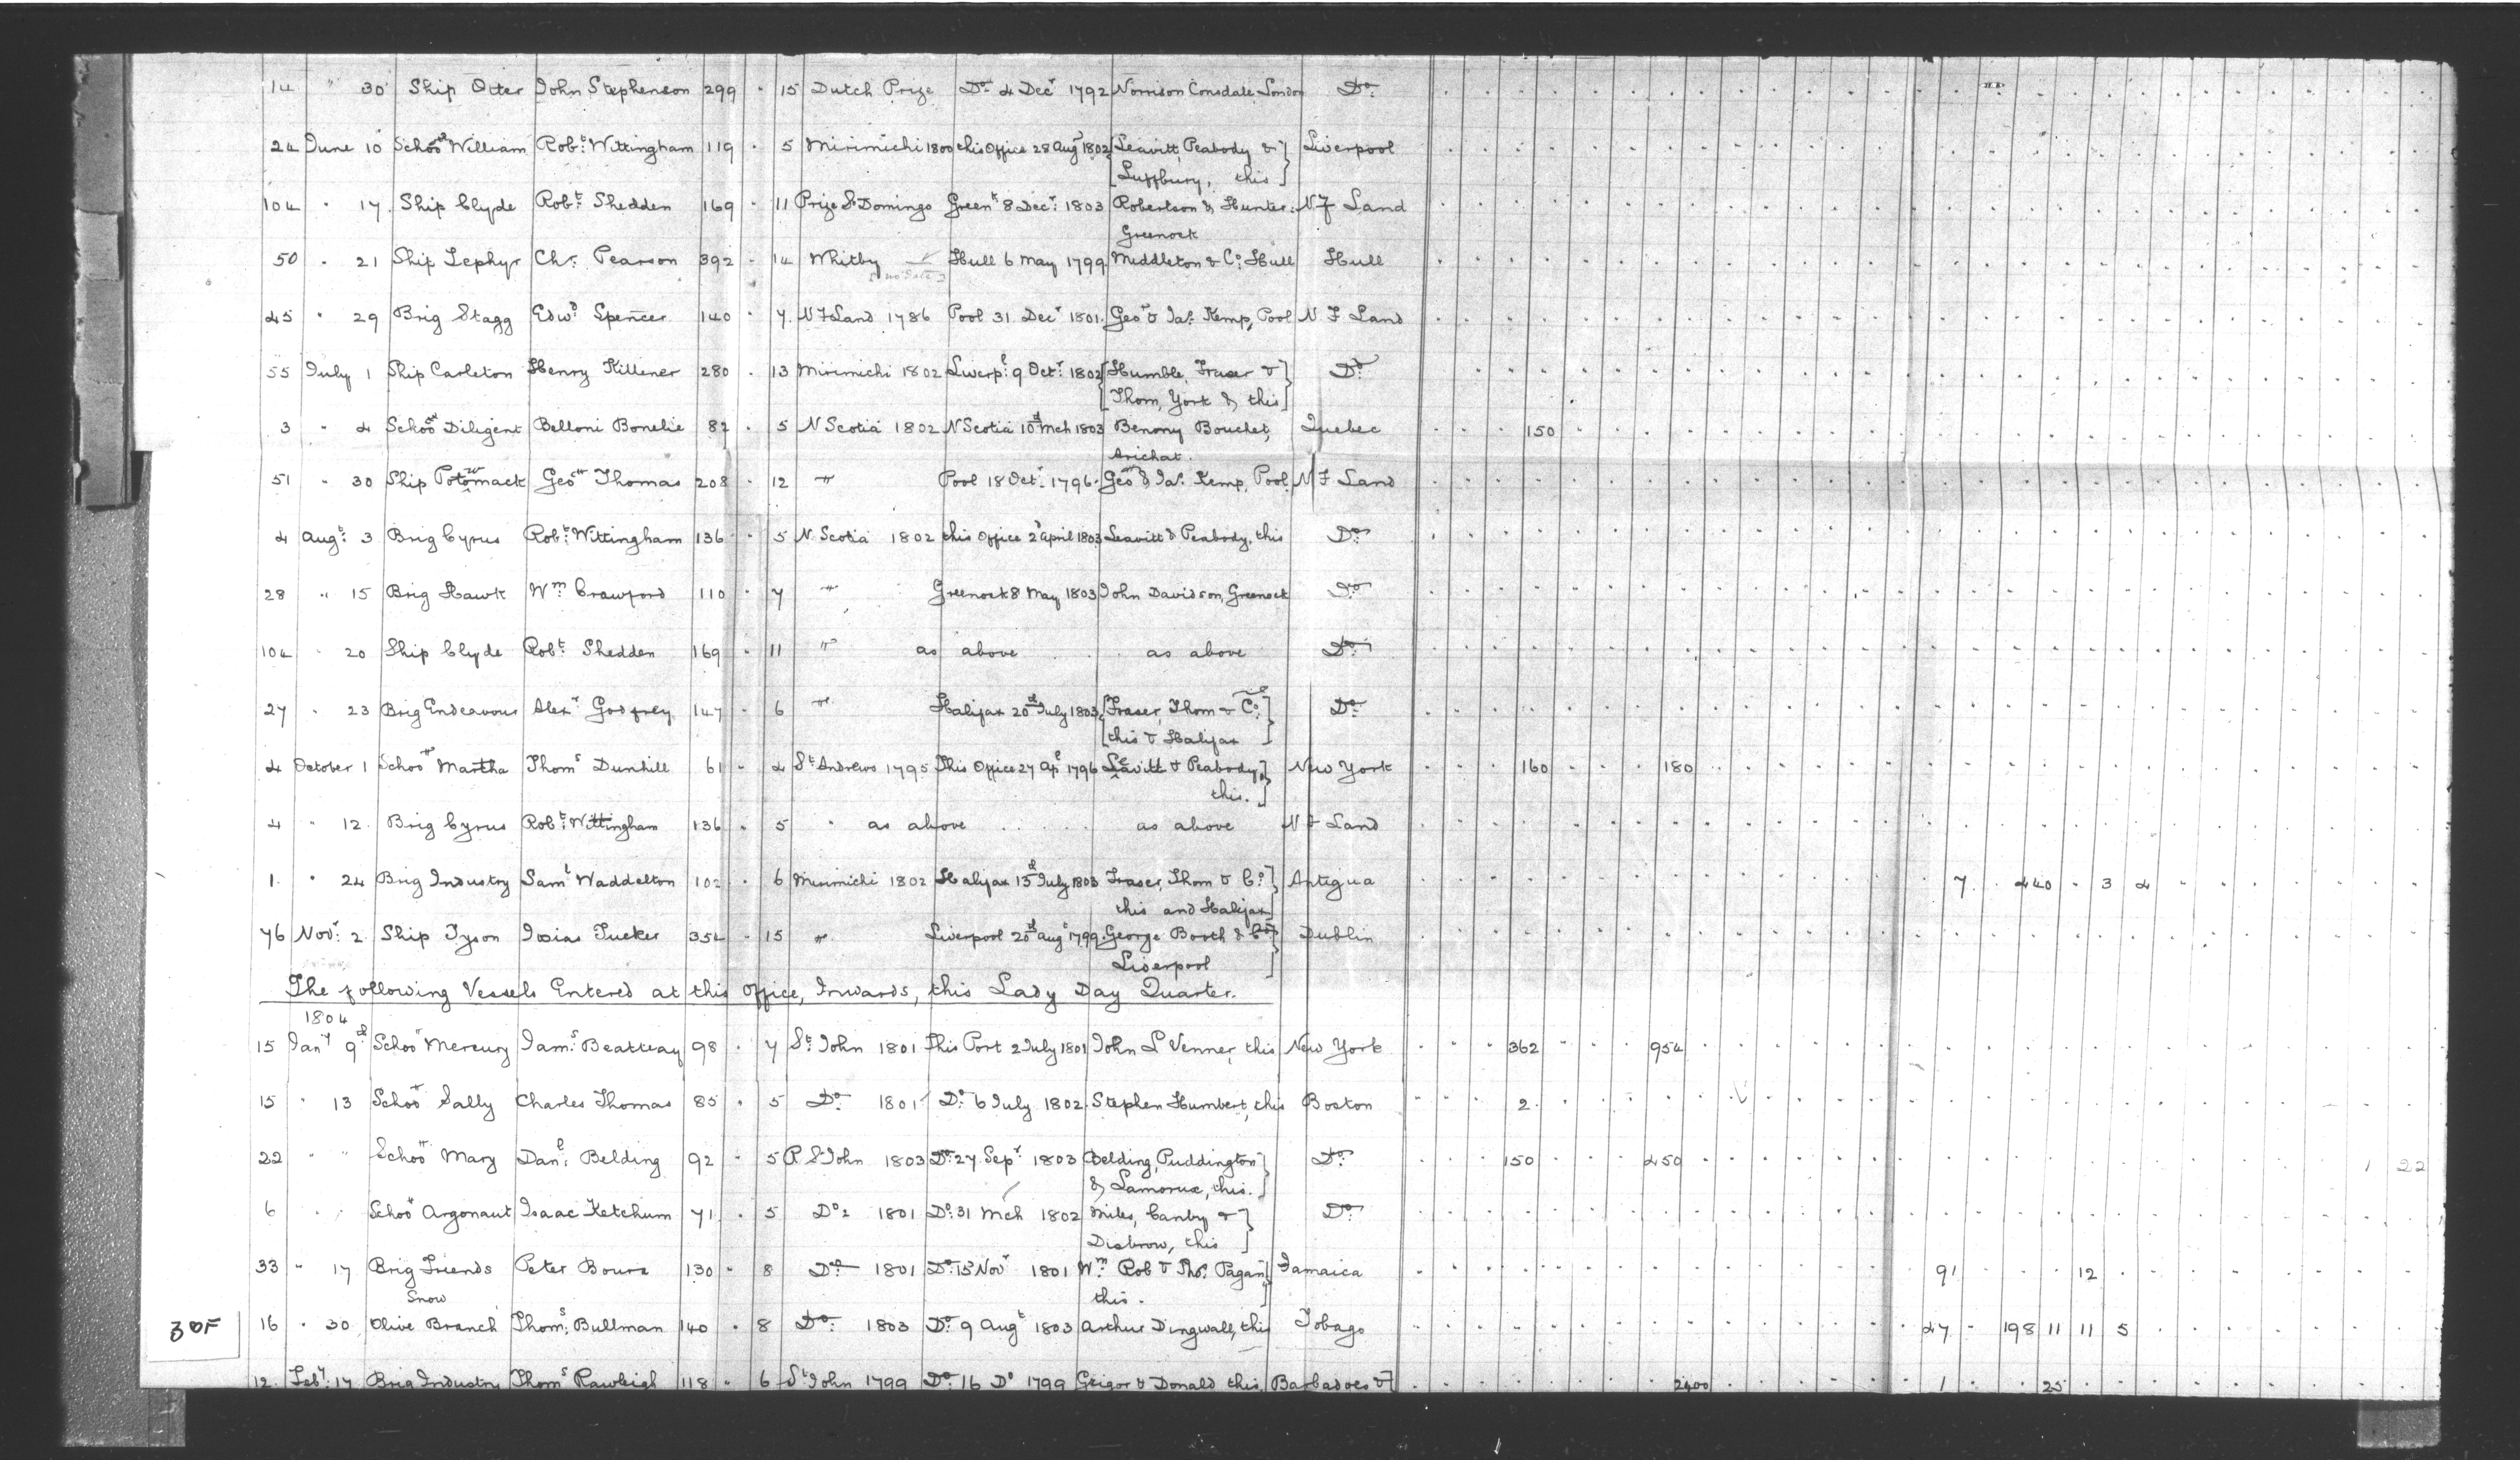 14 " 30 Ship Otter John Stephenson 299 · 15 Dutch Prize Do 4 Decr 1792 Norrison Consdale, London Do
24 June 10 Schoor William Robt Wittingham 119 · 5 Mirimichi 1800 this Office 28 Augt 1802 [Leavitt, Peabody &] Liverpool
[Luffbury, this]
104 " 17 Ship Clyde Robt Shedden 169 · 11 Prize St Domingo Greenk 8 Decr 1803 Robertson & Hunter, N F Land
Greenock
50 " 21 Ship Zephyr Chr. Pearson 392 · 14 Whitby Hull 6 May 1799 Middleton & Co. Hull Hull
[no date]
45 " 29 Brig Stagg Edwd Spencer 140 · 7 N F Land 1786 Pool 31 Decr 1801 Geo & Jas Kemp, Pool N F Land
55 July 1 Ship Carleton Henry Kittener 280 · 13 Mirimichi 1802 Liverpl 9 Octr 1802 [Humble, Fraser &] Do
[Thom, York & this]
3 " 4 Schoor Diligent Belloni Bonelie 87 · 5 N Scotia 1802 N Scotia 10th Mch 1803 Benony Bouchet, Quebec 150
Arichat.
51 " 30 Ship Potomack Geo Thomas 208 · 12 " Pool 18 Octr 1796 Geo & Jas Kemp, Pool N F Land
4 Augt 3 Brig Cyrus Robt Wittingham 136 · 5 N. Scotia 1802 this Office 2d April 1803 Leavitt & Peabody, this Do
28 " 15 Brig Hawk Wm Crawford 110 · 7 " Greenock 8 May 1803 John Davidson, Greenock Do
104 " 20 Ship Clyde Robt Shedden 169 · 11 " as above as above Do
27 " 23 Brig Endeavour Alexr Godfrey 147 · 6 " Halifax 20th July 1803 [Fraser, Thom & Co.] Do
[this & Halifax]
4 October 1 Schoor Martha Thoms Dunhill 61 · 4 St Andrews 1795 This Office 27 Apl 1796 Leavitt & Peabody,] New York 160 180
this.]
4 " 12 Brig Cyrus Robt Wittingham 136 · 5 " as above as above N F Land
1 " 24 Brig Industry Saml Waddelton 102 · 6 Mirimichi 1802 Halifax 13th July 1803 Fraser, Thom & Co.] Antigua 7 440 3 4
this and Halifax]
76 Novr 2 Ship Tyson Josias Tucker 354 · 15 " Liverpool 20th Augt 1799 George Booth & Co] Dublin
Liverpool]
The following Vessels Entered at this Office, Inwards, this Lady Day Quarter.
1804
15 Jany 9th Schoor Mercury Jams Beatteay 98 · 7 St John 1801 This Port 2 July 1801 John L Venner, this New York 362 954
15 " 13 Schoor Sally Charles Thomas 85 · 5 Do 1801 Do 6 July 1802 Stephen Humbert, this Boston 2
22 " " Schoor Mary Danl Belding 92 · 5 R St John 1803 Do 27 Sepr 1803 Belding, Puddington] Do 150 450 1 22
& Lamorue, this.]
6 " " Schoor Argonaut Isaac Ketchum 71 · 5 Do 1801 Do 31 Mch 1802 Miles, Canby &] Do
Disbrow, this]
33 " 17 Brig Friends Peter Bourz 130 · 8 Do 1801 Do 13 Novr 1801 Wm Rob & Thos Pagan] Jamaica 91 12
Snow this.
30F 16 " 30 Olive Branch Thoms Bullman 140 · 8 Do 1803 Do 9 Augt 1803 Arthur Dingwall, this Tobago 47 198 11 11 5
12 Feby 17 Brig Industry Thoms Rawleigh 118 · 6 St John 1799 Do 16 Do 1799 Grigor & Donald this, Barbadoes &] 2400 1 25